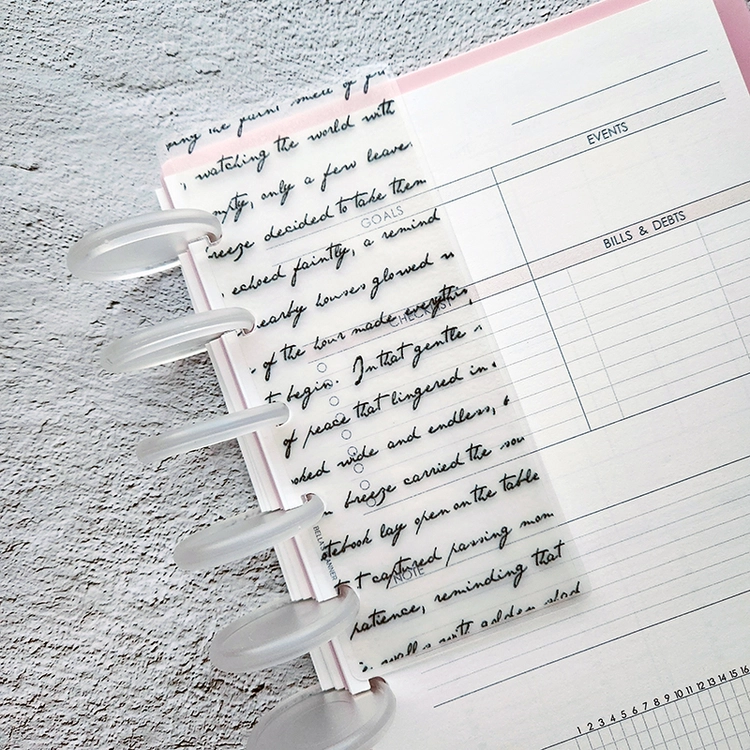 smell of
watching the world with
only a few leaves
decided to take them
echoed faintly, a remind
houses glowed
of the hour made everythin
t begin. In that gentle
of peace that lingered in
oked wide and endless,
breeze carried the sou
otebook lay open on the table
t captured passing mom
patience, reminding that
with golden
GOALS
CHECKLIST
NOTE
EVENTS
BILLS & DEBTS
1 2 3 4 5 6 7 8 9 10 11 12 13 14 15 16